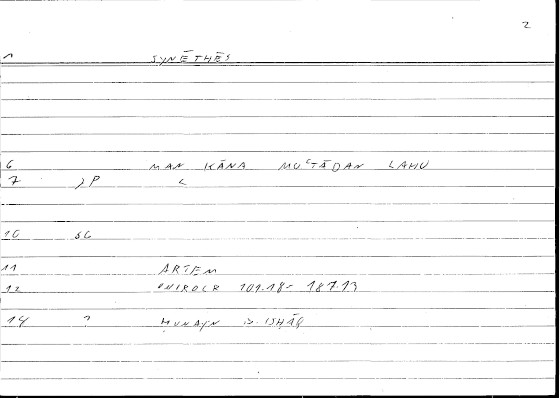 2
1 SYNĒTHĒS
6 MAN KĀNA MUʿTĀDAN LAHU
7 )P <
10 SG
11 ARTEM
12 ONIROCR 109.18- 187.13
14 ? ḤUNAYN B. ISḤĀQ